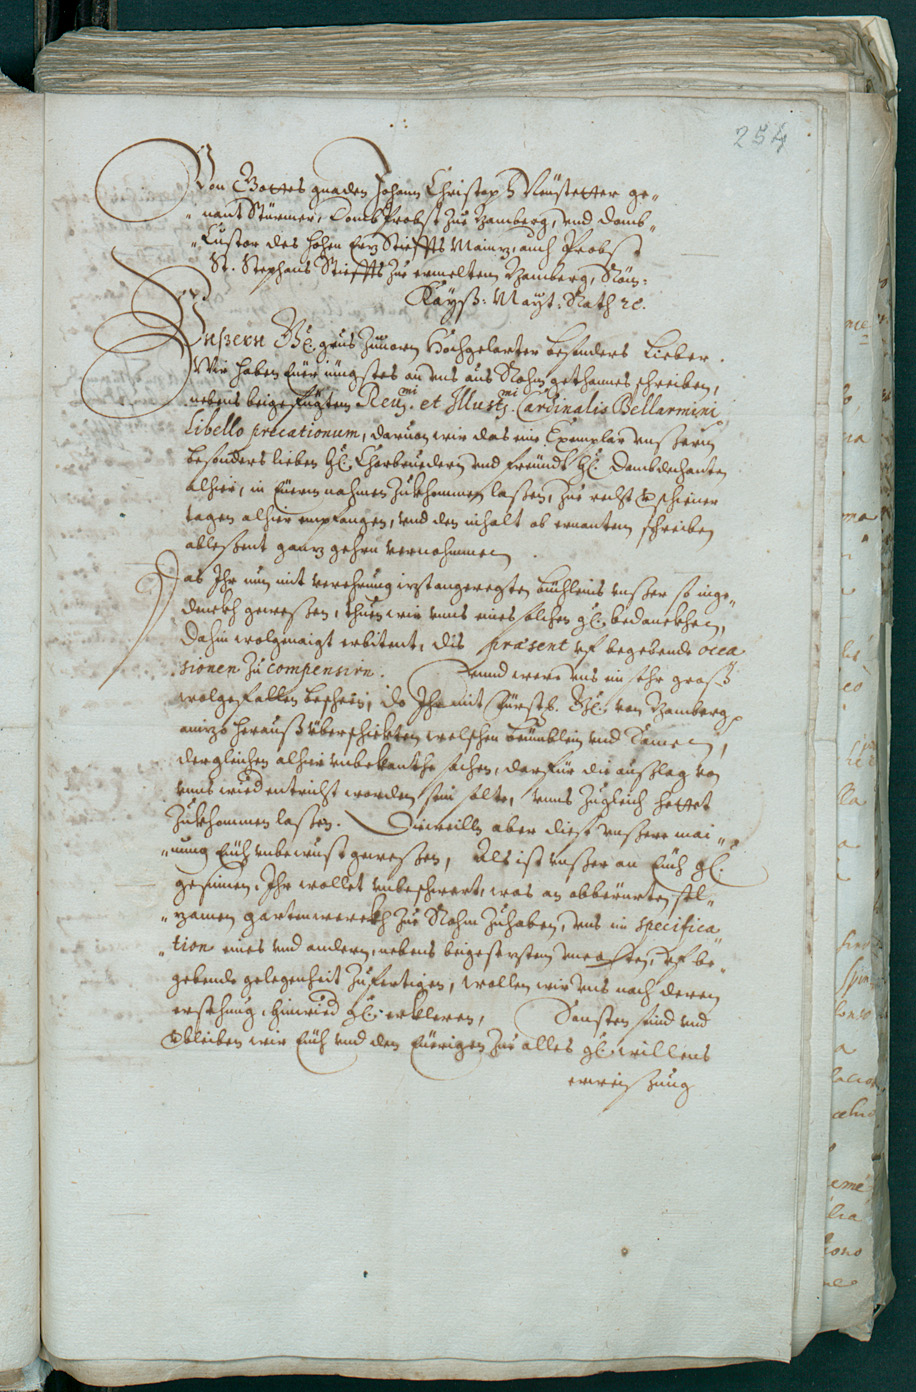 254
Von Gottes gnaden Johann Christoph Neüstetter ge-
nant Stürmer, Domb Probst zue Bamberg, und Domb-
Custor des hohen Ertz Stieffts Maintz, auch Probst
St. Stephans Stieffts zue ermeltem Bamberg, Röm:
Kayß: Mayt: Rath ꝛc.
Unßern Gl. grus zuuorn Hochgelerter besonders Lieber.
Wir haben Euer iüngstes an uns aus Rohm gethannes schreiben,
nebens beigefügten Reumi. et Illustmi. Cardinalis Bellarmini
Libello precationum, daruon wir das eine Exemplar unserm
besonders lieben Hl. Chorbruedern und freündt Hl. Dombdechanten
alhier, in Euerm nahmen zukhommen laßen, zue recht verschiener
tagen alhier empfangen, und den inhalt ob ernantem schreiben
alleßent gantz gehrn vernohmmen.
Das Ihr nun mit verehrung ietztangeregten büchleins unßer so inge-
denckh geweßen, thuen wir unns eines solchen gl. bedanckhen,
dahin wolgenaigt erbitent, dis præsent uf begebende occa
sionen zu compensirn. Unnd were uns ein sehr groß
wolgefallen beschein, do Ihr mit Fürstl. Gl. von Bamberg
annizo heraußüberschickten welschen bäumblein und Samen,
dergleichen alhier unbekanthe sachen, darfür die außlag von
unns wied entricht worden sein solte, unns zugleich hettet
zukhommen laßen. Dieweilln aber diese unßere mai-
nung Euch unbewust geweßen, Als ist unßer an Euch gl.
gesinnen, Ihr wollet unbeschwert, was an obberürten sel-
zamen gartenwerckh zue Rohm zuhaben, uns in specifica
tion eines und andern, nebens beigeseztem werth, uf be-
gebende gelegenheit zufertigen, wollen wir uns nach deren
ersehung, hinwied gl. erkleren, Sonsten sind und
verbleiben wir Euch und den Eüerigen zue alles gl. willens
erweißung